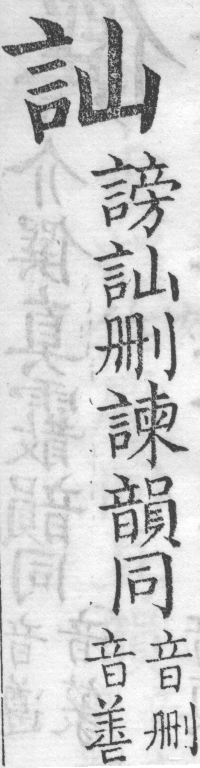 訕
謗訕刪諫韻同
音刪
音善